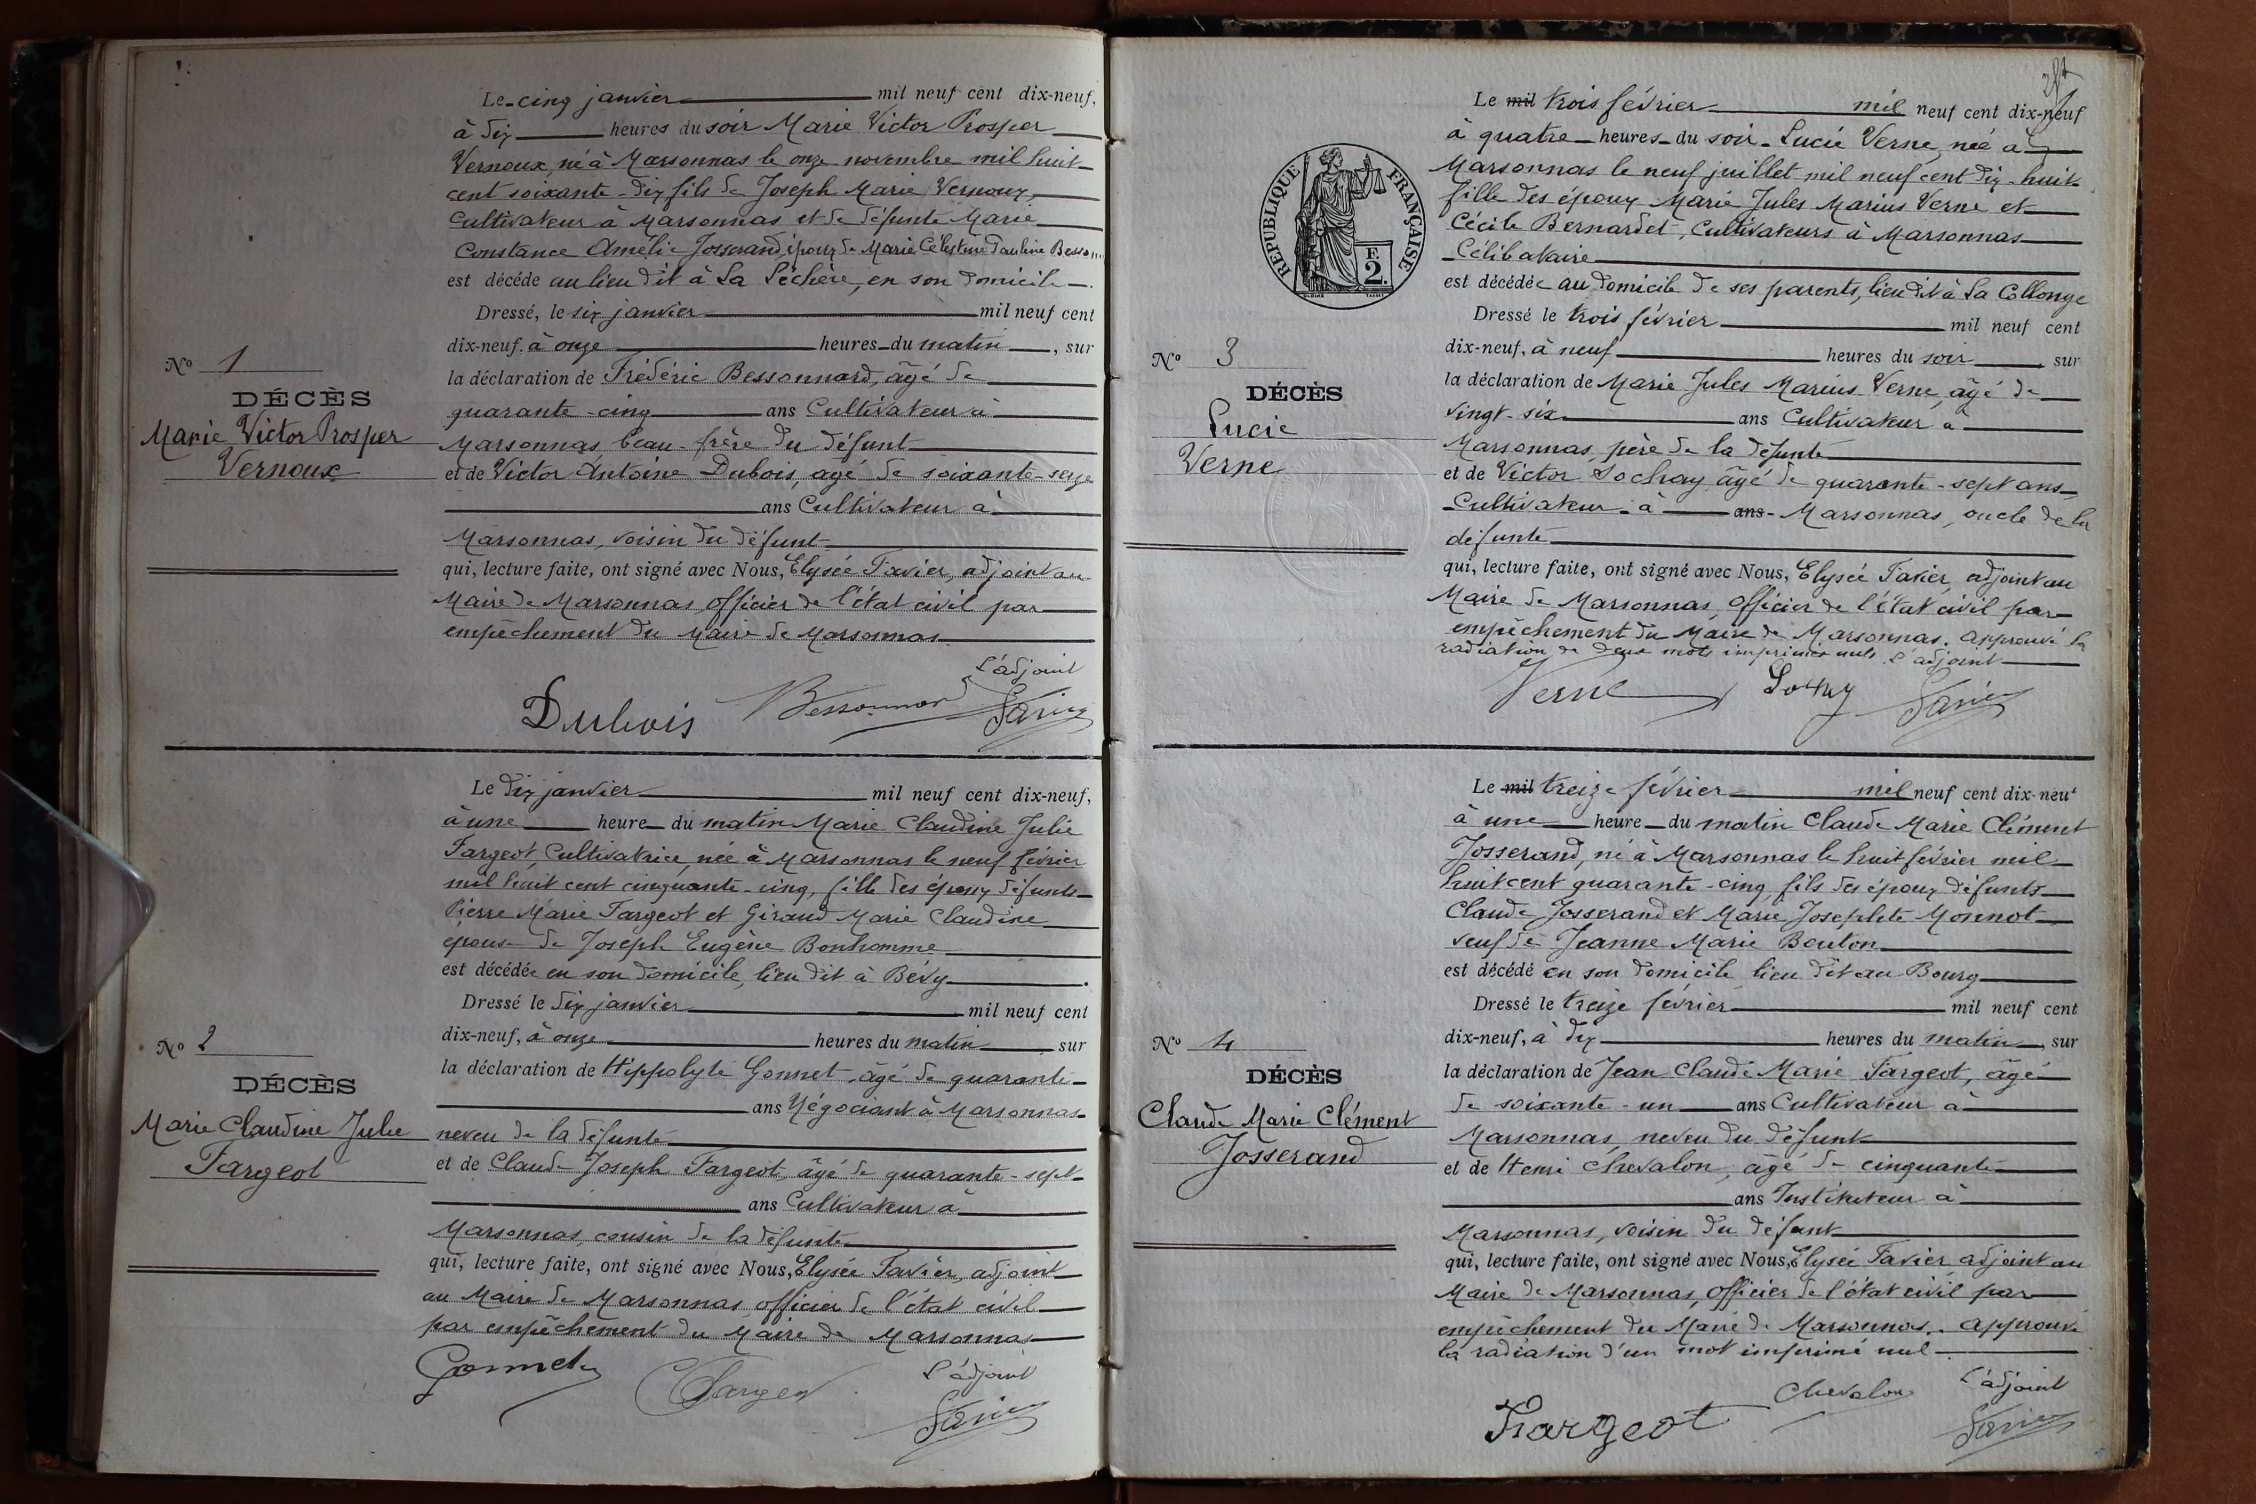 Le cinq janvier mil neuf cent dix-neuf,
à dix heures du soir Marie Victor Prosper
Vernoux, né à Marsonnas le onze novembre mil huit
cent soixante-dix fils de Joseph Marie Vernoux,
cultivateur à Marsonnas et de défunte Marie
Constance Amélie Josserand, époux de Marie Célestine Pauline Bessonn
est décédé au lieu dit à La Péchère, en son domicile.
Dressé, le six janvier mil neuf cent
dix-neuf. à onze heures du matin, sur
la déclaration de Frédéric Bessonnard, âgé de
quarante-cinq ans Cultivateur à
Marsonnas beau-frère du défunt
et de Victor Antoine Dubois, âgé de soixante-seize
ans Cultivateur à
Marsonnas, voisin du défunt
qui, lecture faite, ont signé avec Nous, Elysée Favier, adjoint au
Maire de Marsonnas officier de l'état civil par
empêchement du Maire de Marsonnas
L'adjoint
Dubois Bessonnard Favier
N° 1
DÉCÈS
Marie Victor Prosper
Vernoux
Le dix janvier mil neuf cent dix-neuf,
à une heure du matin Marie Claudine Julie
Fargeot, Cultivatrice, née à Marsonnas le neuf février
mil huit cent cinquante-cinq, fille des époux défunts
Pierre Marie Fargeot et Giraud Marie Claudine
épouse de Joseph Eugène Bonhomme
est décédée en son domicile, lieu dit à Bévy.
Dressé le dix janvier mil neuf cent
dix-neuf, à onze heures du matin sur
la déclaration de Hippolyte Gonnet, âgé de quarante
ans Négociant à Marsonnas
neveu de la défunte
et de Claude Joseph Fargeot, âgé de quarante-sept
ans Cultivateur à
Marsonnas, cousin de la défunte
qui, lecture faite, ont signé avec Nous, Elysée Favier, adjoint
au Maire de Marsonnas officier de l'état civil
par empêchement du Maire de Marsonnas
L'adjoint
Gonnet Fargeot Favier
N° 2
DÉCÈS
Marie Claudine Julie
Fargeot
Le mil trois février mil neuf cent dix-neuf
à quatre heures du soir Lucie Verne, née à
Marsonnas le neuf juillet mil neuf cent dix-huit
fille des époux Marie Jules Marius Verne et
Cécile Bernardet, Cultivateurs à Marsonnas
Célibataire
est décédée au domicile de ses parents, lieu dit à La Collonge
Dressé le trois février mil neuf cent
dix-neuf, à neuf heures du soir, sur
la déclaration de Marie Jules Marius Verne, âgé de
vingt-six ans Cultivateur à
Marsonnas, père de la défunte
et de Victor Sochay âgé de quarante-sept ans
Cultivateur à ans Marsonnas, oncle de la
défunte
qui, lecture faite, ont signé avec Nous, Elysée Favier, adjoint au
Maire de Marsonnas Officier de l'état civil par
empêchement du Maire de Marsonnas. Approuvé la
radiation de deux mots imprimés nuls. L'adjoint
Verne Favier
RÉPUBLIQUE FRANÇAISE
F.
2.
N° 3
DÉCÈS
Lucie
Verne
Le mil treize février mil neuf cent dix-neuf
à une heure du matin Claude Marie Clément
Josserand, né à Marsonnas le huit février mil
huit cent quarante-cinq fils des époux défunts
Claude Josserand et Marie Josephte Monnot
veuf de Jeanne Marie Bouton
est décédé en son domicile lieu dit au Bourg
Dressé le treize février mil neuf cent
dix-neuf, à dix heures du matin, sur
la déclaration de Jean Claude Marie Fargeot, âgé
de soixante-un ans Cultivateur à
Marsonnas, neveu du défunt
et de Henri Chevalon, âgé de cinquante
ans Instituteur à
Marsonnas, voisin du défunt
qui, lecture faite, ont signé avec Nous, Elysée Favier adjoint au
Maire de Marsonnas, Officier de l'état civil par
empêchement du Maire de Marsonnas. Approuvé
la radiation d'un mot imprimé nul
L'adjoint
Fargeot Chevalon Favier
N° 4
DÉCÈS
Claude Marie Clément
Josserand